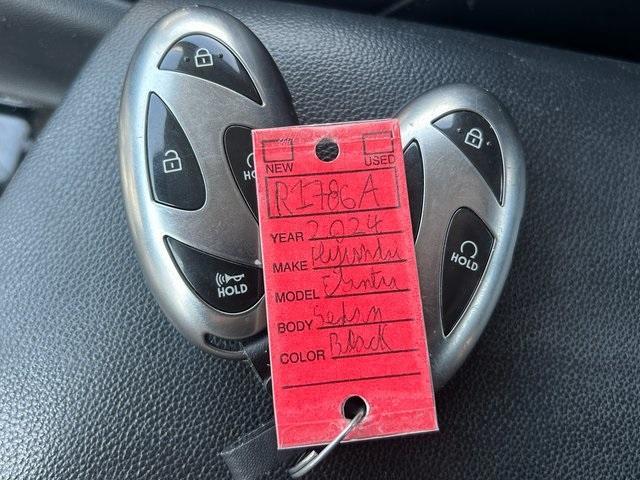 HOLD
HOLD
NEW USED
R1786A
YEAR 2024
MAKE
MODEL
BODY Sedan
COLOR Black
HOLD